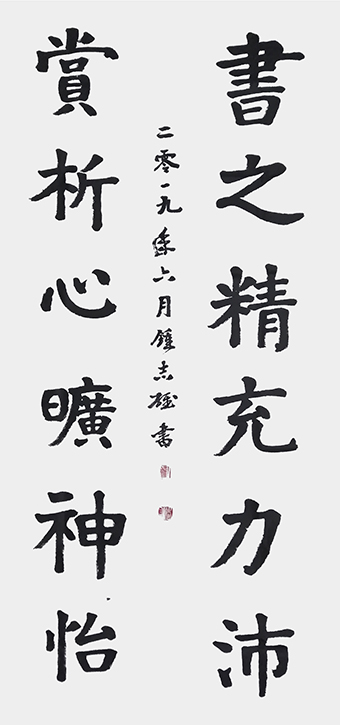 書之精充力沛
二零一九年六月鍾志書
賞析心曠神怡